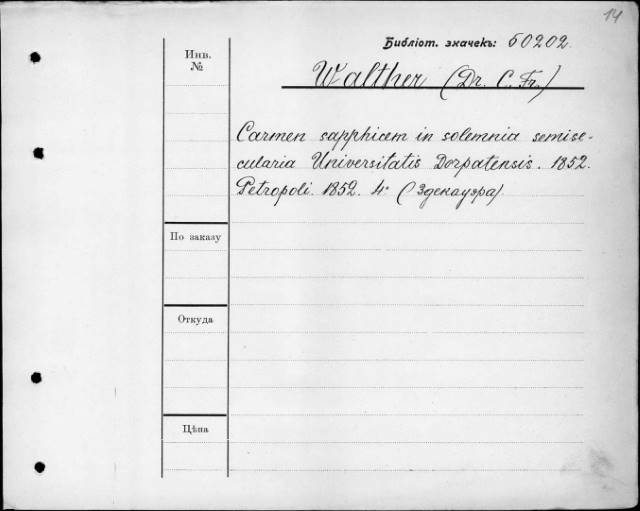 14
Библіот. значекъ: 60202
Инв.
№
Walther (Dr. C. Fr.)
Carmen sapphicem in solemnia semise-
cularia Universitatis Dorpatensis. 1852.
Petropoli. 1852. 4° (Здекауэра)
По заказу
Откуда
Цѣна